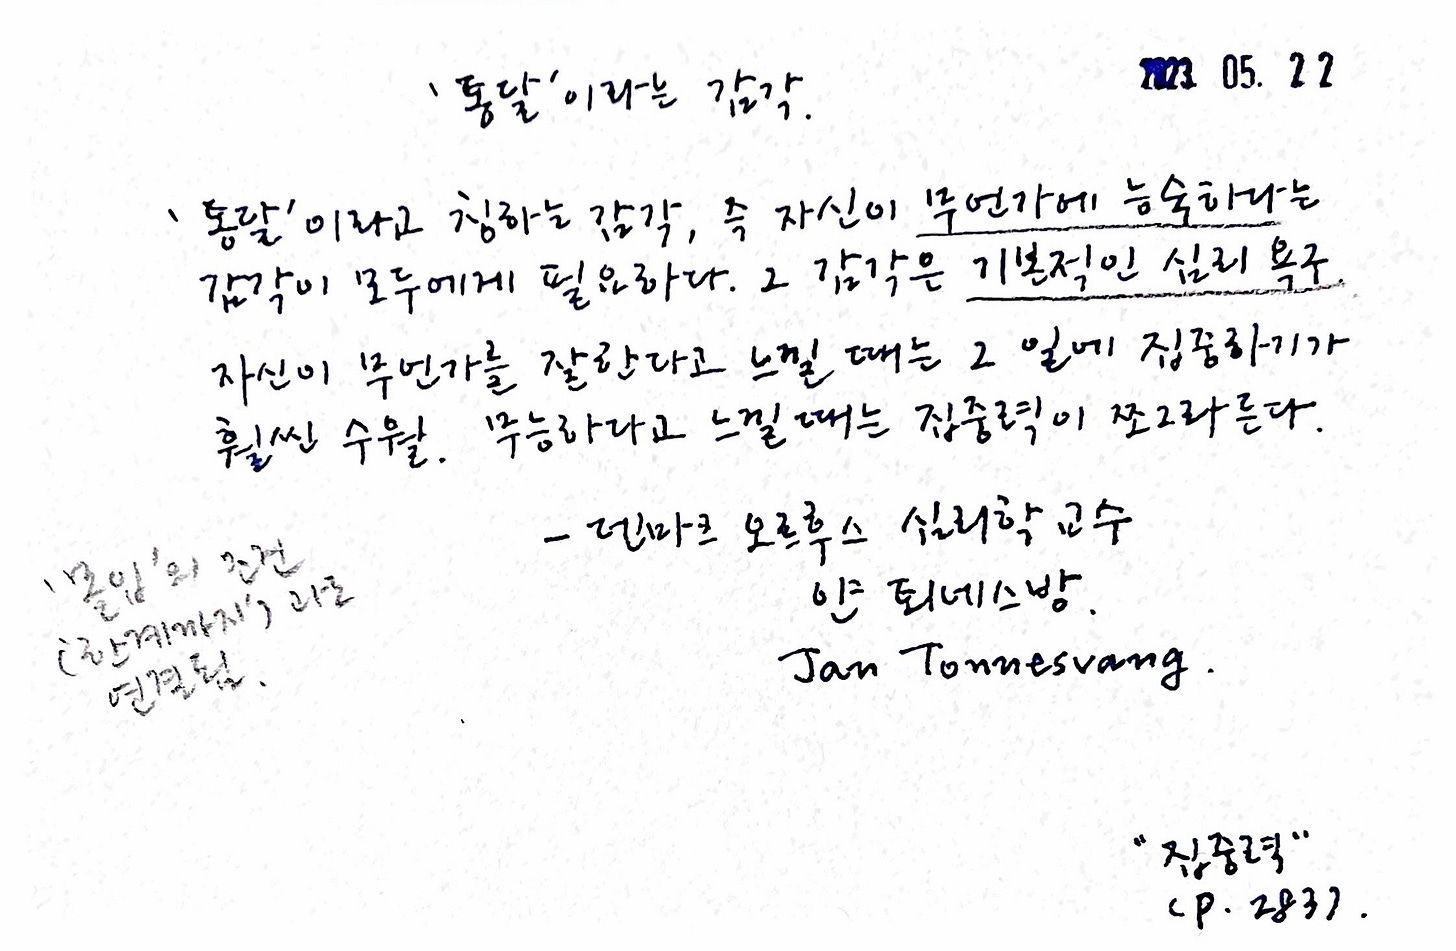 2023 05. 22
'통달'이라는 감각.
'통달'이라고 칭하는 감각, 즉 자신이 무언가에 능숙하다는
감각이 모두에게 필요하다. 그 감각은 기본적인 심리 욕구.
자신이 무언가를 잘한다고 느낄 때는 그 일에 집중하기가
훨씬 수월. 무능하다고 느낄 때는 집중력이 쪼그라든다.
- 덴마크 오르후스 심리학 교수
얀 퇴네스방.
Jan Tonnesvang.
'몰입'의 조건
(한계까지)과도
연결됨.
"집중력"
(p. 283).